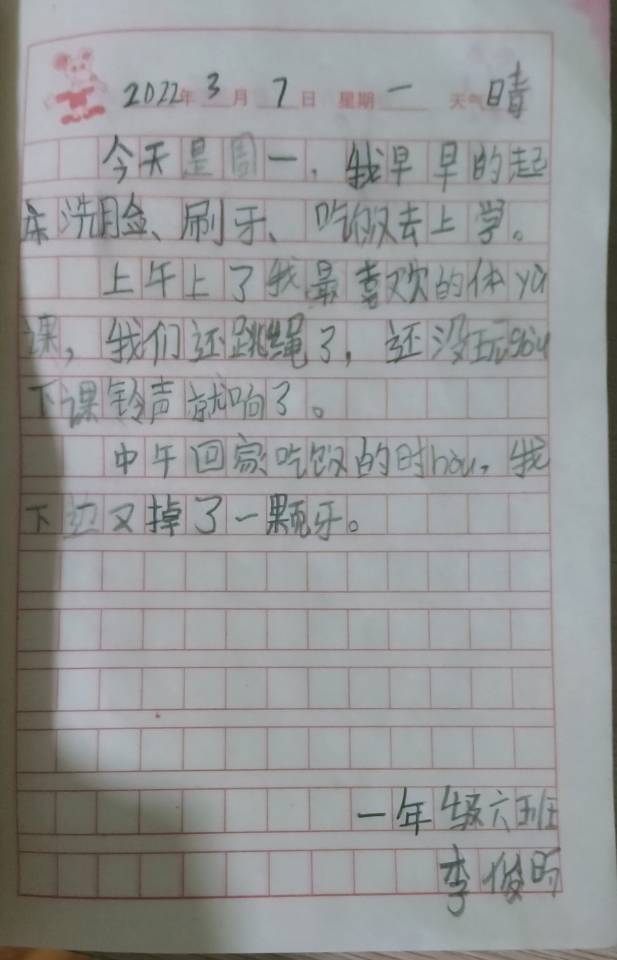 2022年 3月 7日 星期 一 天气 晴
今天是周一，我早早的起
床洗脸、刷牙、吃饭去上学。
上午上了我最喜欢的体yù
课，我们还跳绳了，还没玩gòu
下课铃声就响了。
中午回家吃饭的时hòu，我
下边又掉了一颗牙。
一年级六班
李俊昕